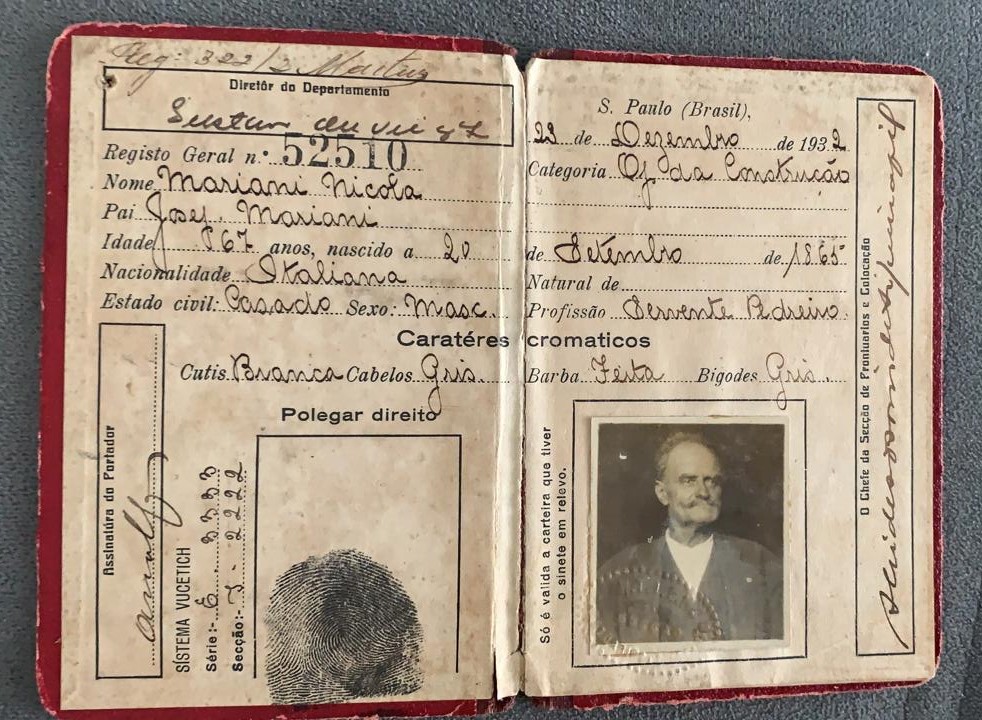 Reg: 322/2
Diretôr do Departamento
Registo Geral n.º 52510
Nome Mariani Nicola
Pai Josef. Mariani
Idade 67 anos, nascido a 20
Nacionalidade Italiana
Estado civil: Casado Sexo: Masc.
S. Paulo (Brasil),
23 de Dezembro de 1932
Categoria Of. da Construcão
de Setembro de 1865
Natural de
Profissão Servente Pedreiro.
Caratéres cromaticos
Cutis Branca Cabelos Gris.
Barba Feita Bigodes Gris.
Polegar direito
Assinatúra do Portador
SÍSTEMA VUCETICH
Série:- E 3333
Secção:- 2222
Só é valida a carteira que tiver
o sinete em relevo.
O Chefe da Secção de Prontuarios e Colocação